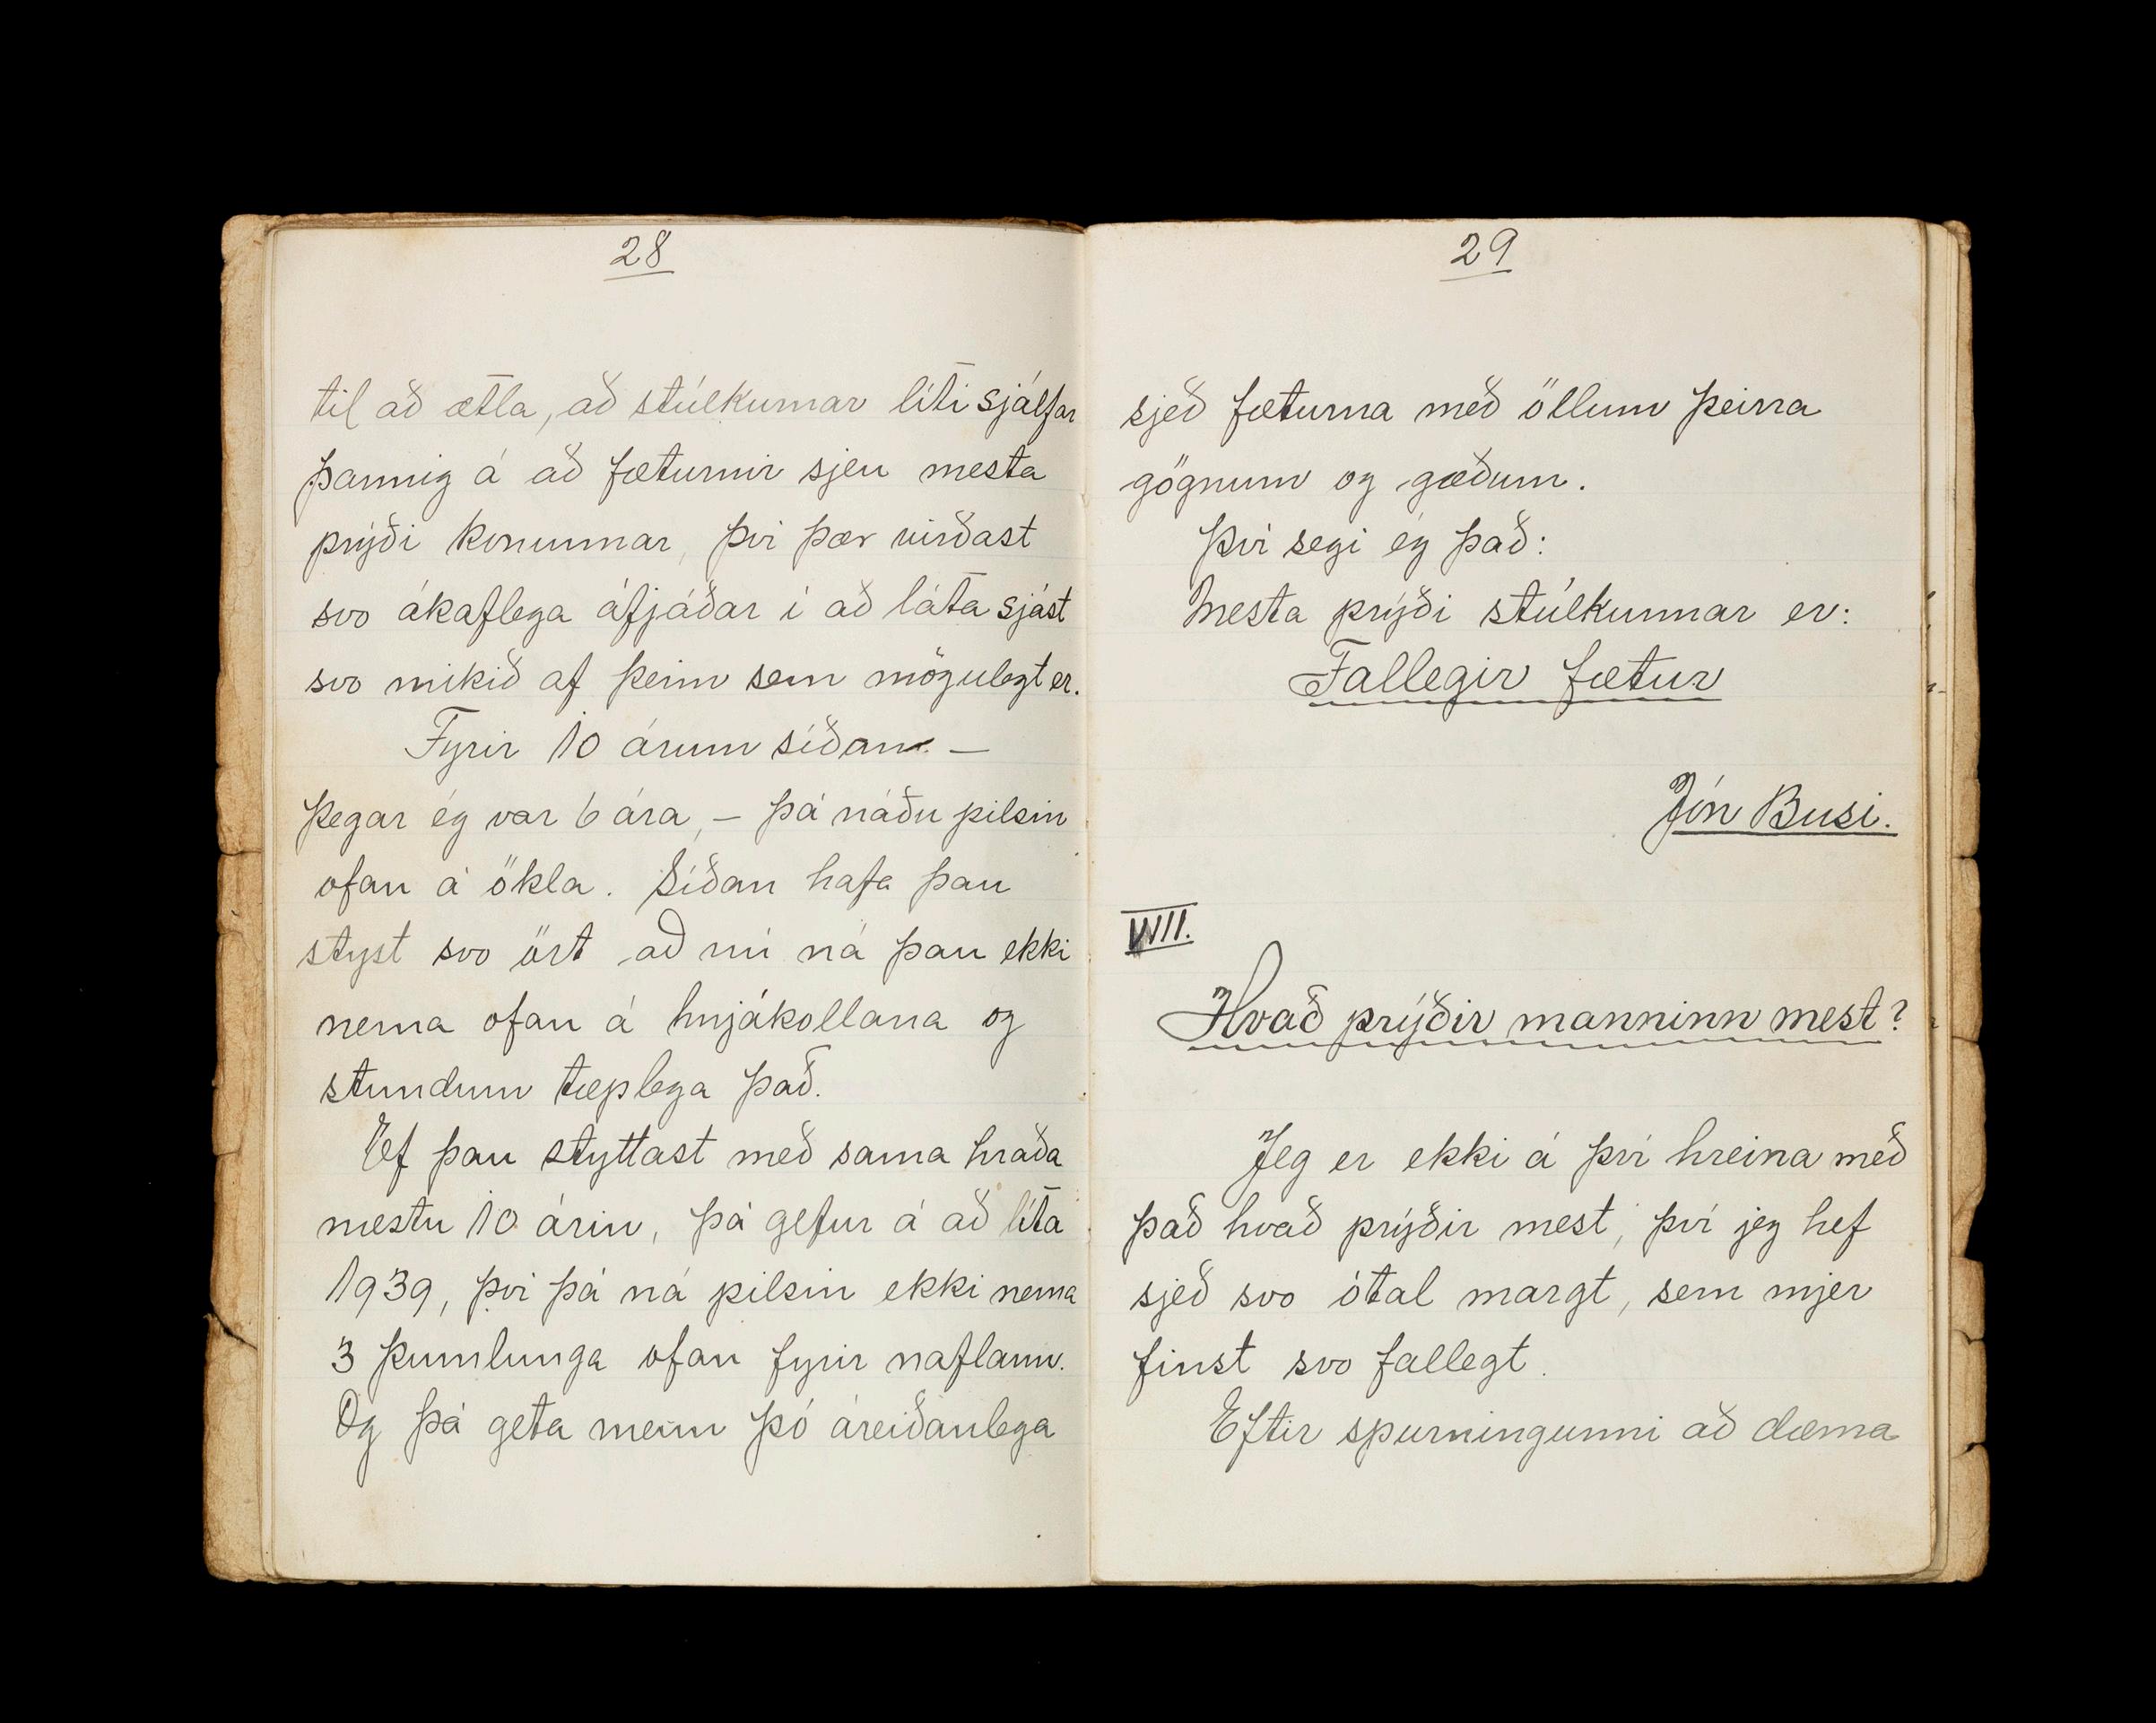 28
til að ætla, að stúlkurnar líti sjálfar
þannig á að fæturnir sjeu mesta
prýði konunnar, því þær virðast
svo ákaflega áfjáðar í að láta sjást
svo mikið af þeim sem mögulegt er.
Fyrir 10 árum síðan. —
Þegar ég var 6 ára, — þá náðu pilsin
ofan á ökla. Síðan hafa þau
styst svo ört að nú ná þau ekki
nema ofan á hnjákollana og
stundum tæplega það.
Ef þau styttast með sama hraða
næstu 10 árin, þá gefur á að líta
1939, því þá ná pilsin ekki nema
3 þumlunga ofan fyrir naflann.
Og þá geta menn þó áreiðanlega
29
sjeð fæturna með öllum þeirra
gögnum og gæðum.
Því segi ég það:
Mesta prýði stúlkunnar er:
Fallegir fætur
Jón Busi.
VIII.
Hvað prýðir manninn mest?
Jeg er ekki á því hreina með
það hvað prýðir mest, því jeg hef
sjeð svo ótal margt, sem mjer
finst svo fallegt.
Eftir spurningunni að dæma